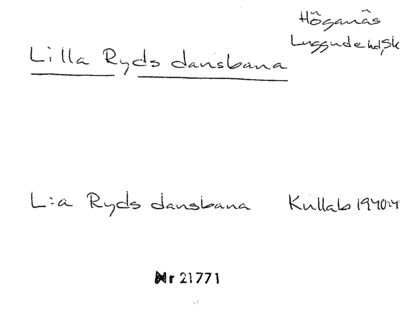 Höganäs
Luggude hd, Sk
Lilla Ryds dansbana
L:a Ryds dansbana Kullab 1940:4
Nr 21771